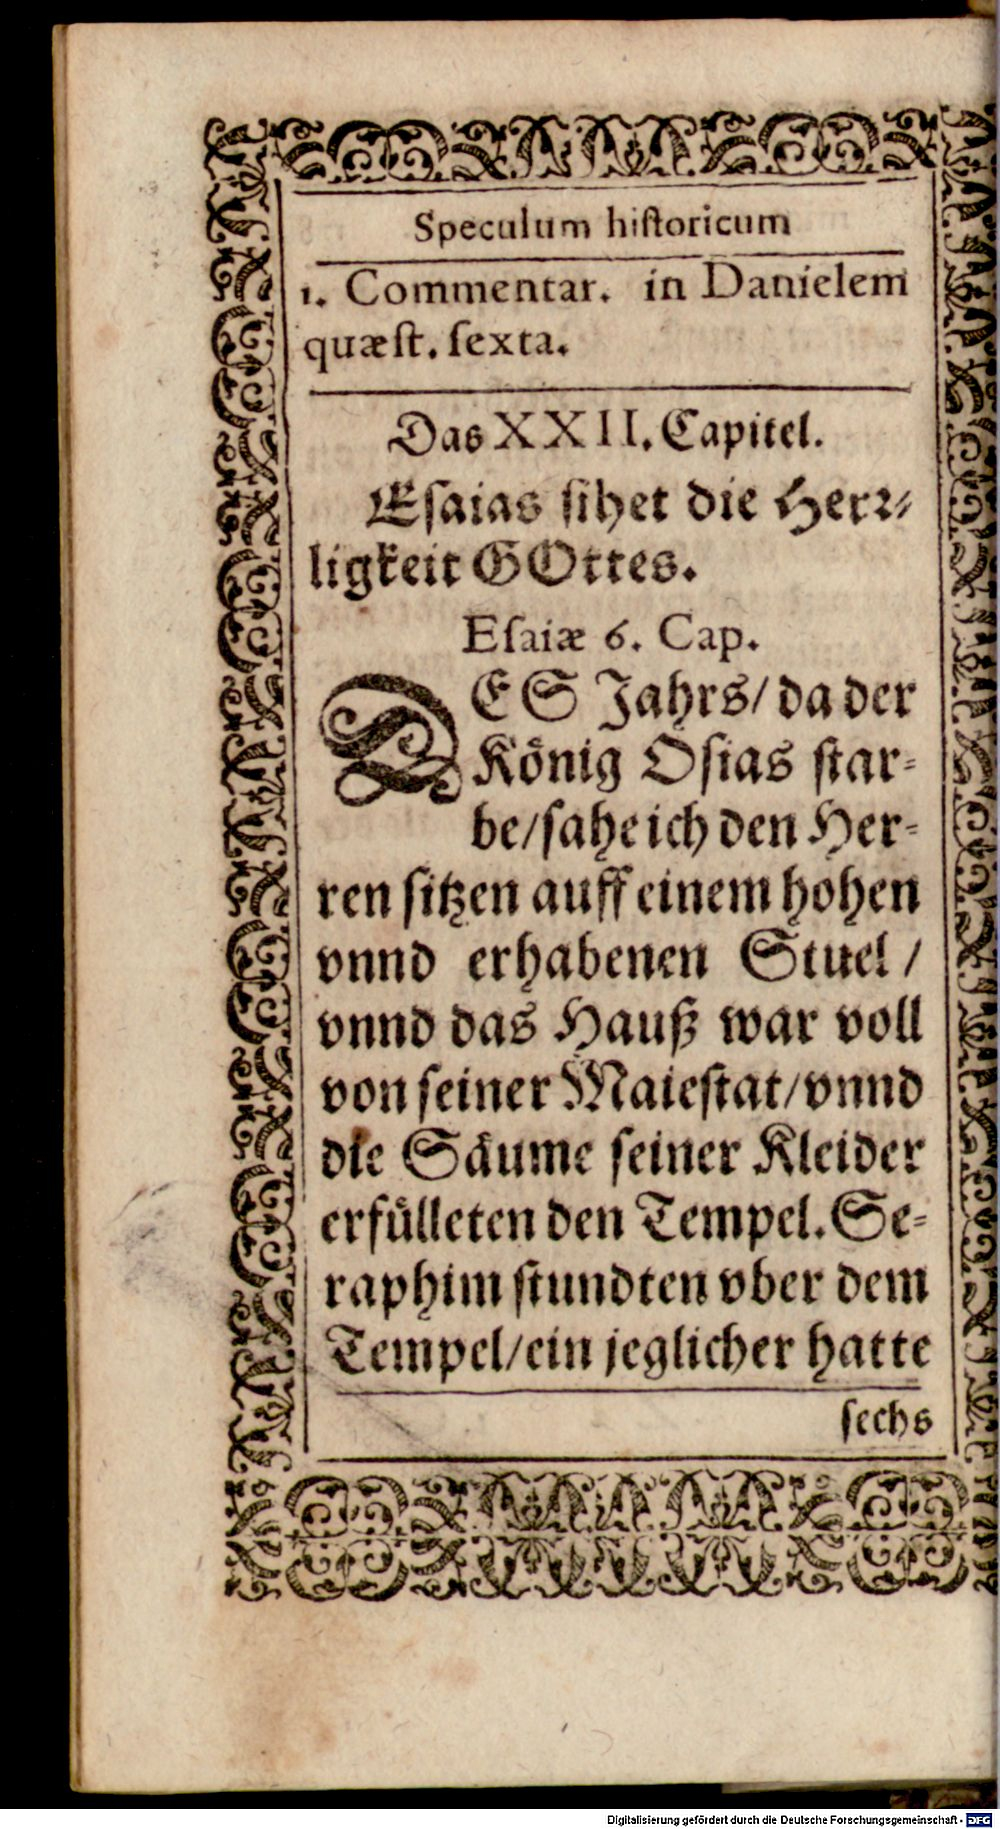 Speculum hiſtoricum
1. Commentar. in Danielem
quæſt. ſexta.
Das XXII. Capitel.
Eſaias ſihet die Herꝛ⸗
ligkeit GOttes.
Eſaiæ 6. Cap.
DES Jahrs/ da der
König Oſias ſtar⸗
be/ſahe ich den Her⸗
ren ſitzen auff einem hohen
vnnd erhabenen Stuel/
vnnd das Hauß war voll
von ſeiner Maieſtat/vnnd
die Säume ſeiner Kleider
erfülleten den Tempel. Se⸗
raphim ſtundten vber dem
Tempel/ein jeglicher hatte
ſechs
Digitalisierung gefördert durch die Deutsche Forschungsgemeinschaft - DFG